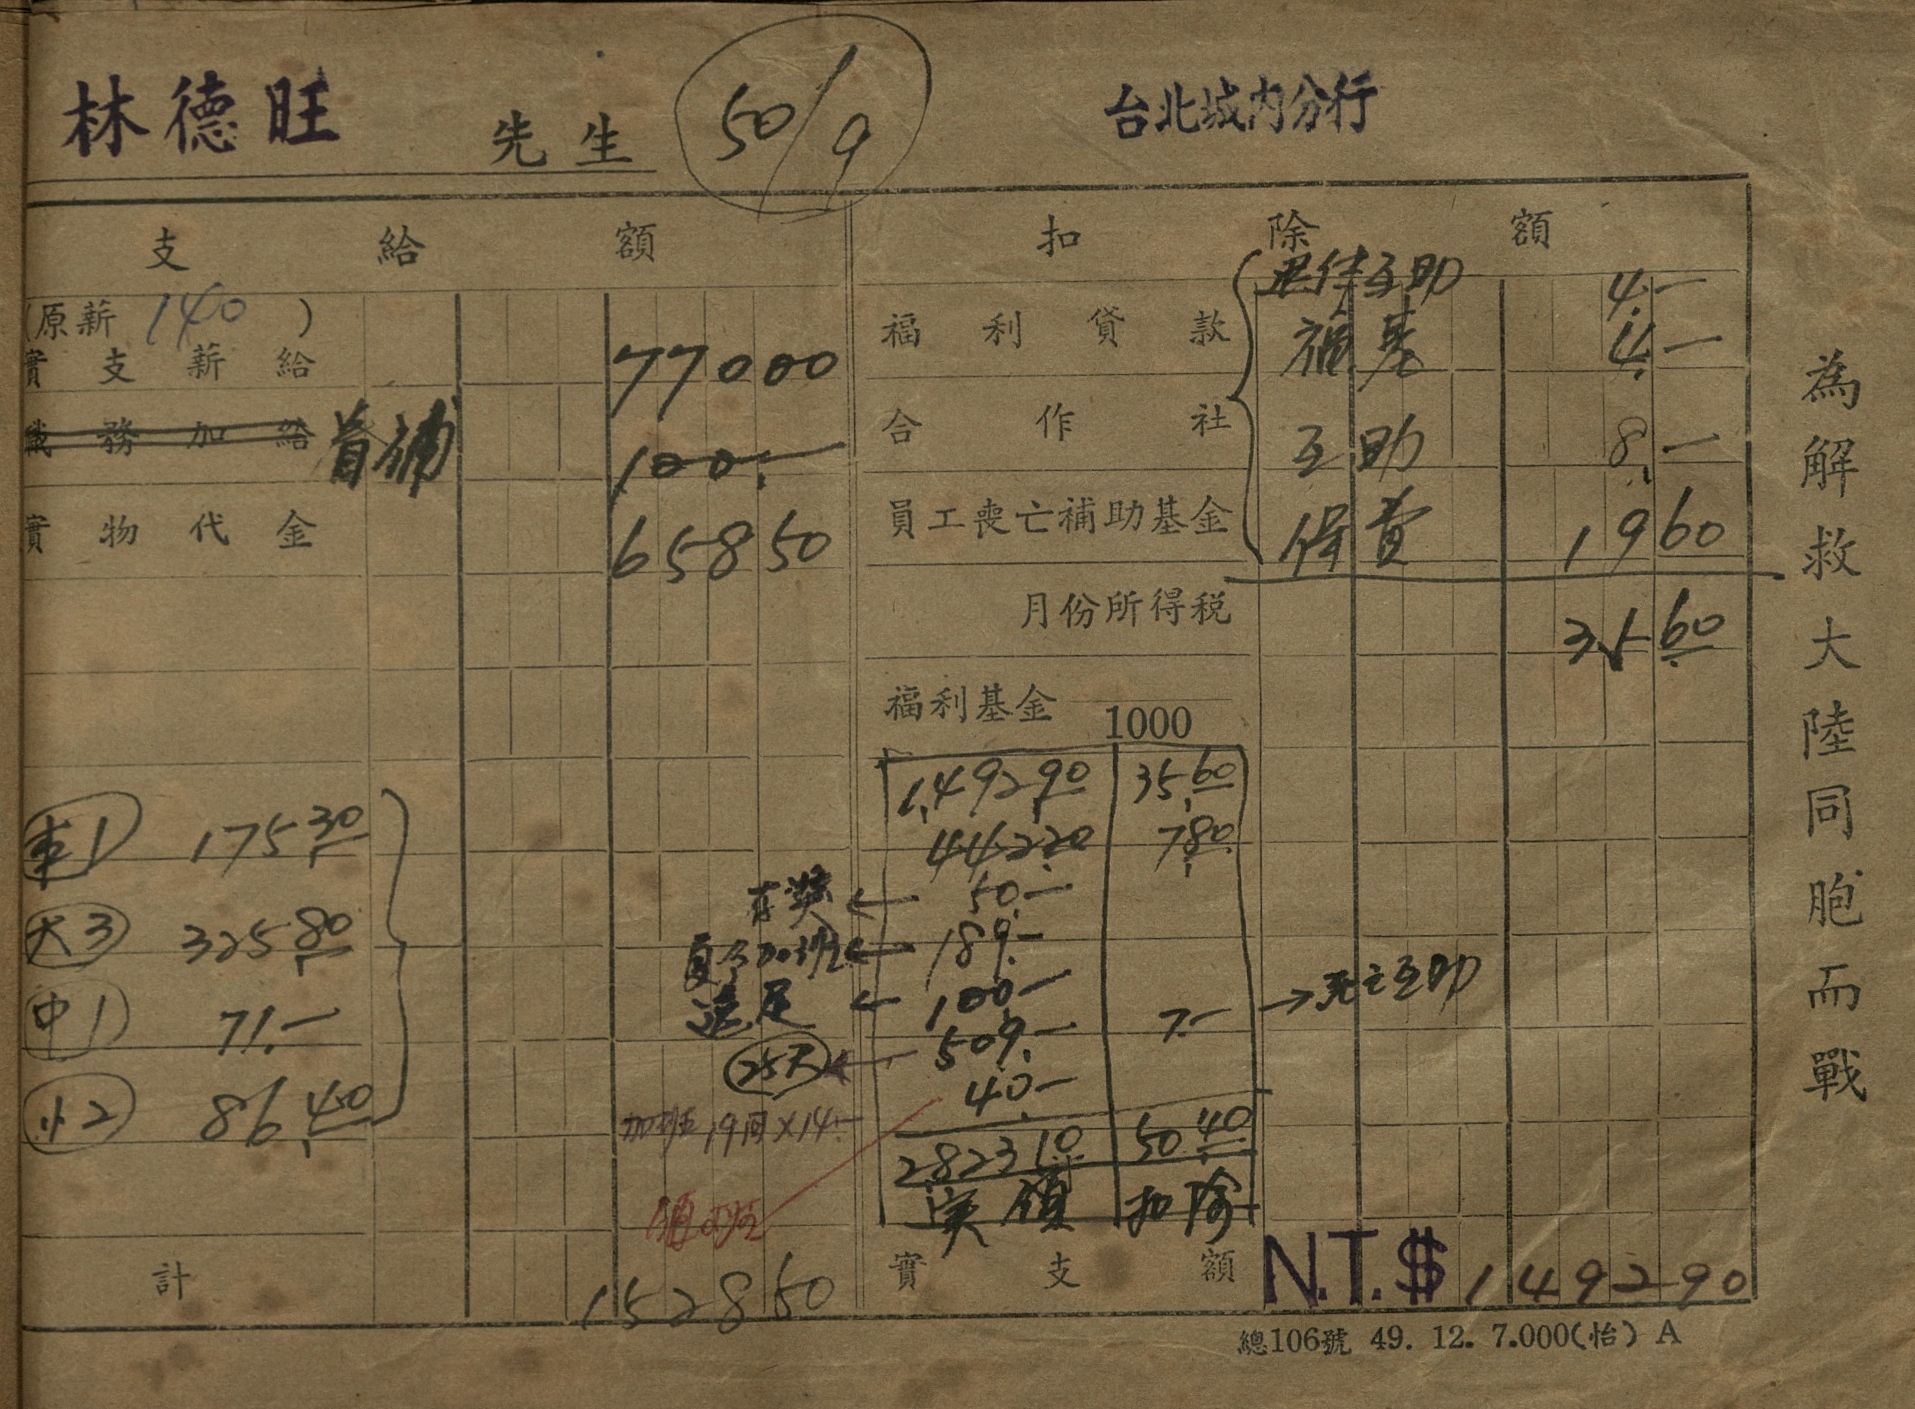 林德旺 先生 50/9 台北城內分行
支給額
(原薪 140 )
實支薪給 770 00
職務加給 眷補 100.—
實物代金 658 50
車1 175.30
大3 325.80
中1 71.—
小2 86.40
計 1528 50
扣除額
福利貸款 互助 4.—
福基 4.—
合作社 互助 8.—
員工喪亡補助基金 保費 19 60
月份所得稅 35 60
福利基金 1000
1,492.90 35.60
442.20 7.80
50.—
夏令加班 ← 189.—
遠足 ← 100.— 7.— → 死亡互助
25天 ← 509.—
40.—
加班 19間×14.—
2823 10 50.40
実領 扣除
實支額 N.T.$ 1492 90
總106號 49. 12. 7.000(怡) A
為解救大陸同胞而戰